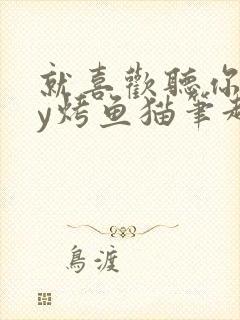 就喜歡聽你
y烤鱼猫筆趣
鳥渡